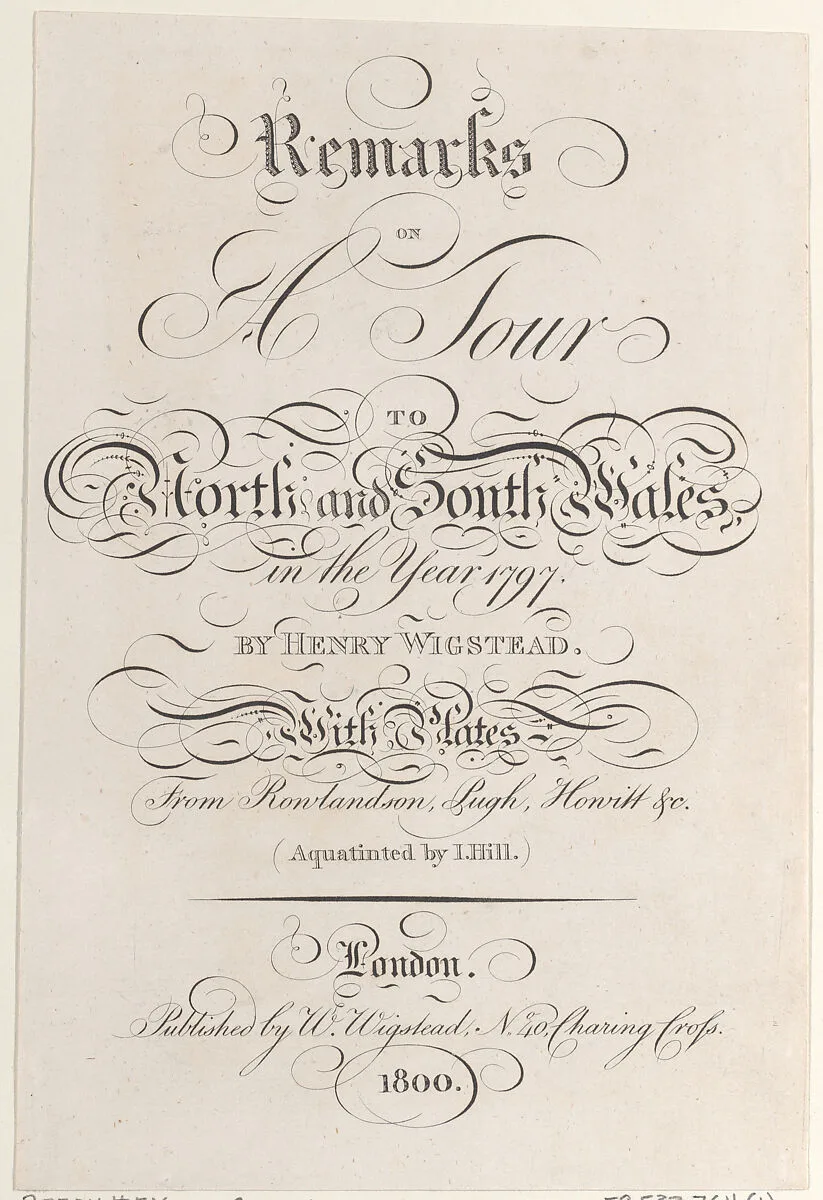 Remarks
ON
A Tour
TO
North and South Wales,
in the Year 1797.
BY HENRY WIGSTEAD.
With Plates
From Rowlandson, Pugh, Howitt &c.
(Aquatinted by I. Hill.)
London.
Published by W. Wigstead, No. 40, Charing Croſs.
1800.